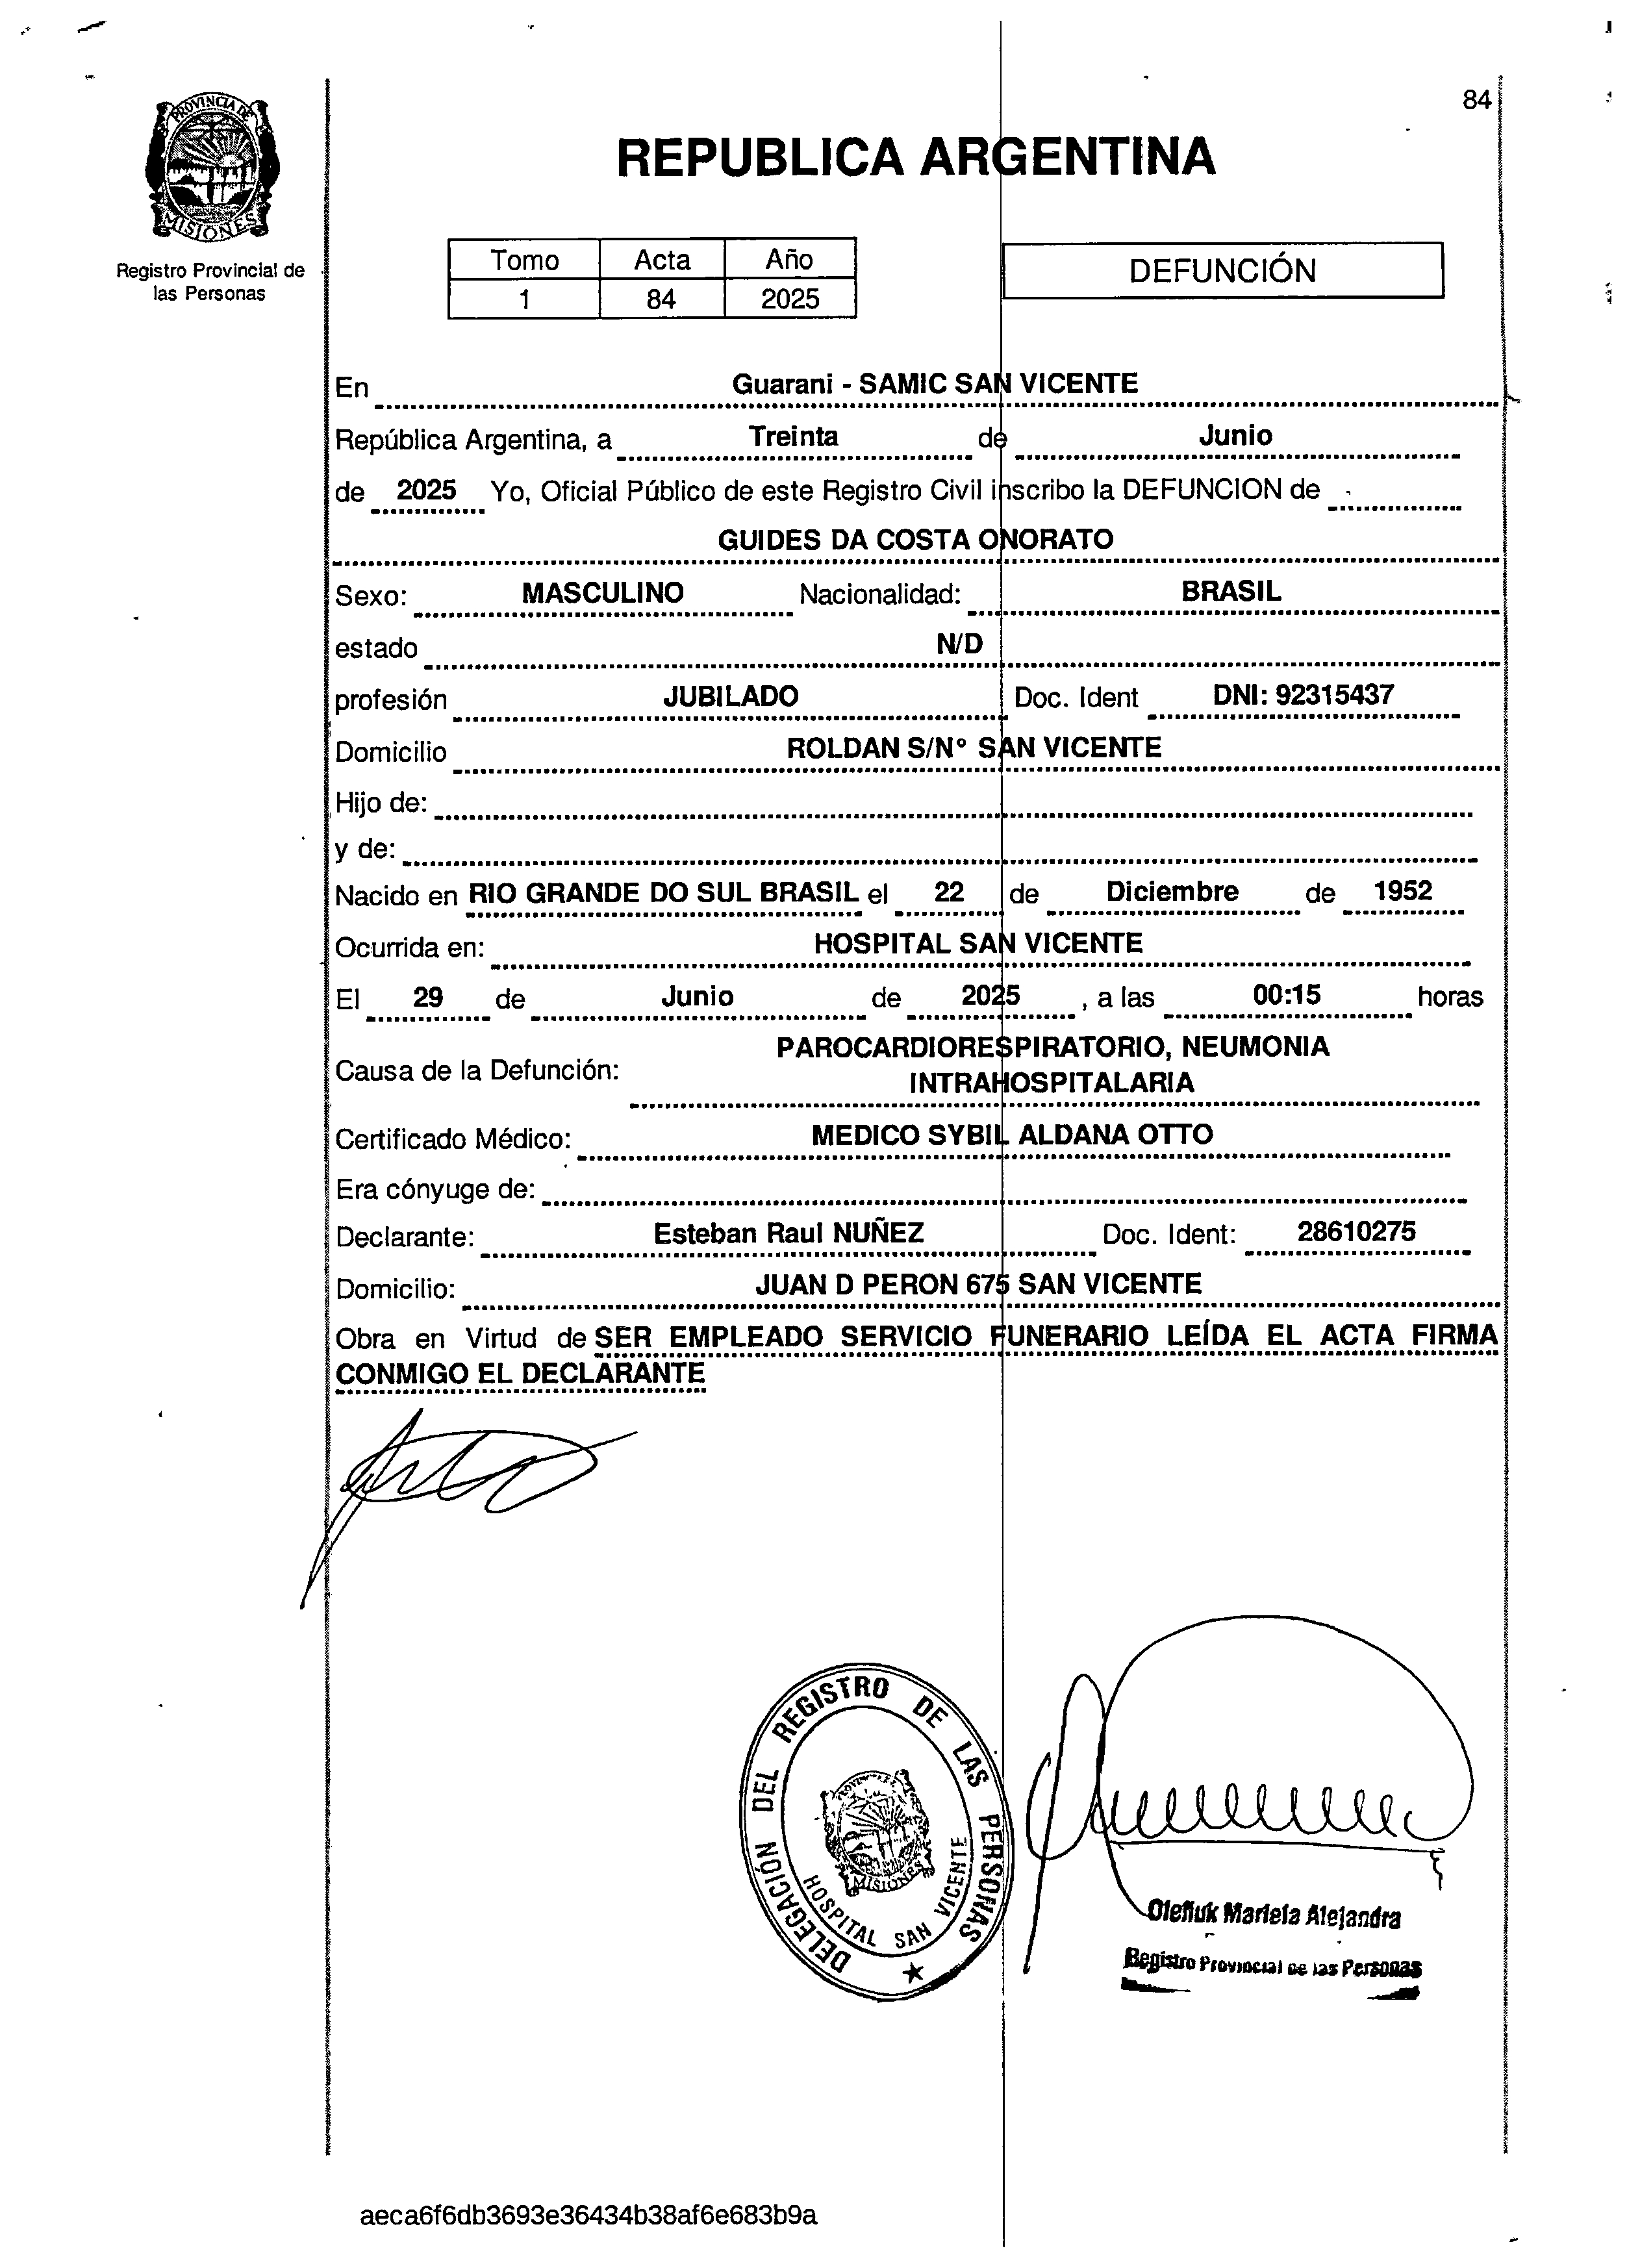 84
PROVINCIA DE
MISIONES
Registro Provincial de
las Personas
REPUBLICA ARGENTINA
Tomo Acta Año
1 84 2025
DEFUNCIÓN
En Guarani - SAMIC SAN VICENTE
República Argentina, a Treinta de Junio
de 2025 Yo, Oficial Público de este Registro Civil inscribo la DEFUNCION de
GUIDES DA COSTA ONORATO
Sexo: MASCULINO Nacionalidad: BRASIL
estado N/D
profesión JUBILADO Doc. Ident DNI: 92315437
Domicilio ROLDAN S/N° SAN VICENTE
Hijo de:
y de:
Nacido en RIO GRANDE DO SUL BRASIL el 22 de Diciembre de 1952
Ocurrida en: HOSPITAL SAN VICENTE
El 29 de Junio de 2025 , a las 00:15 horas
Causa de la Defunción: PAROCARDIORESPIRATORIO, NEUMONIA
INTRAHOSPITALARIA
Certificado Médico: MEDICO SYBIL ALDANA OTTO
Era cónyuge de:
Declarante: Esteban Raul NUÑEZ Doc. Ident: 28610275
Domicilio: JUAN D PERON 675 SAN VICENTE
Obra en Virtud de SER EMPLEADO SERVICIO FUNERARIO LEÍDA EL ACTA FIRMA
CONMIGO EL DECLARANTE
DELEGACIÓN DEL REGISTRO DE LAS PERSONAS
HOSPITAL SAN VICENTE
MISIONES
Mariela Alejandra
Registro Provincial de las Personas
aeca6f6db3693e36434b38af6e683b9a